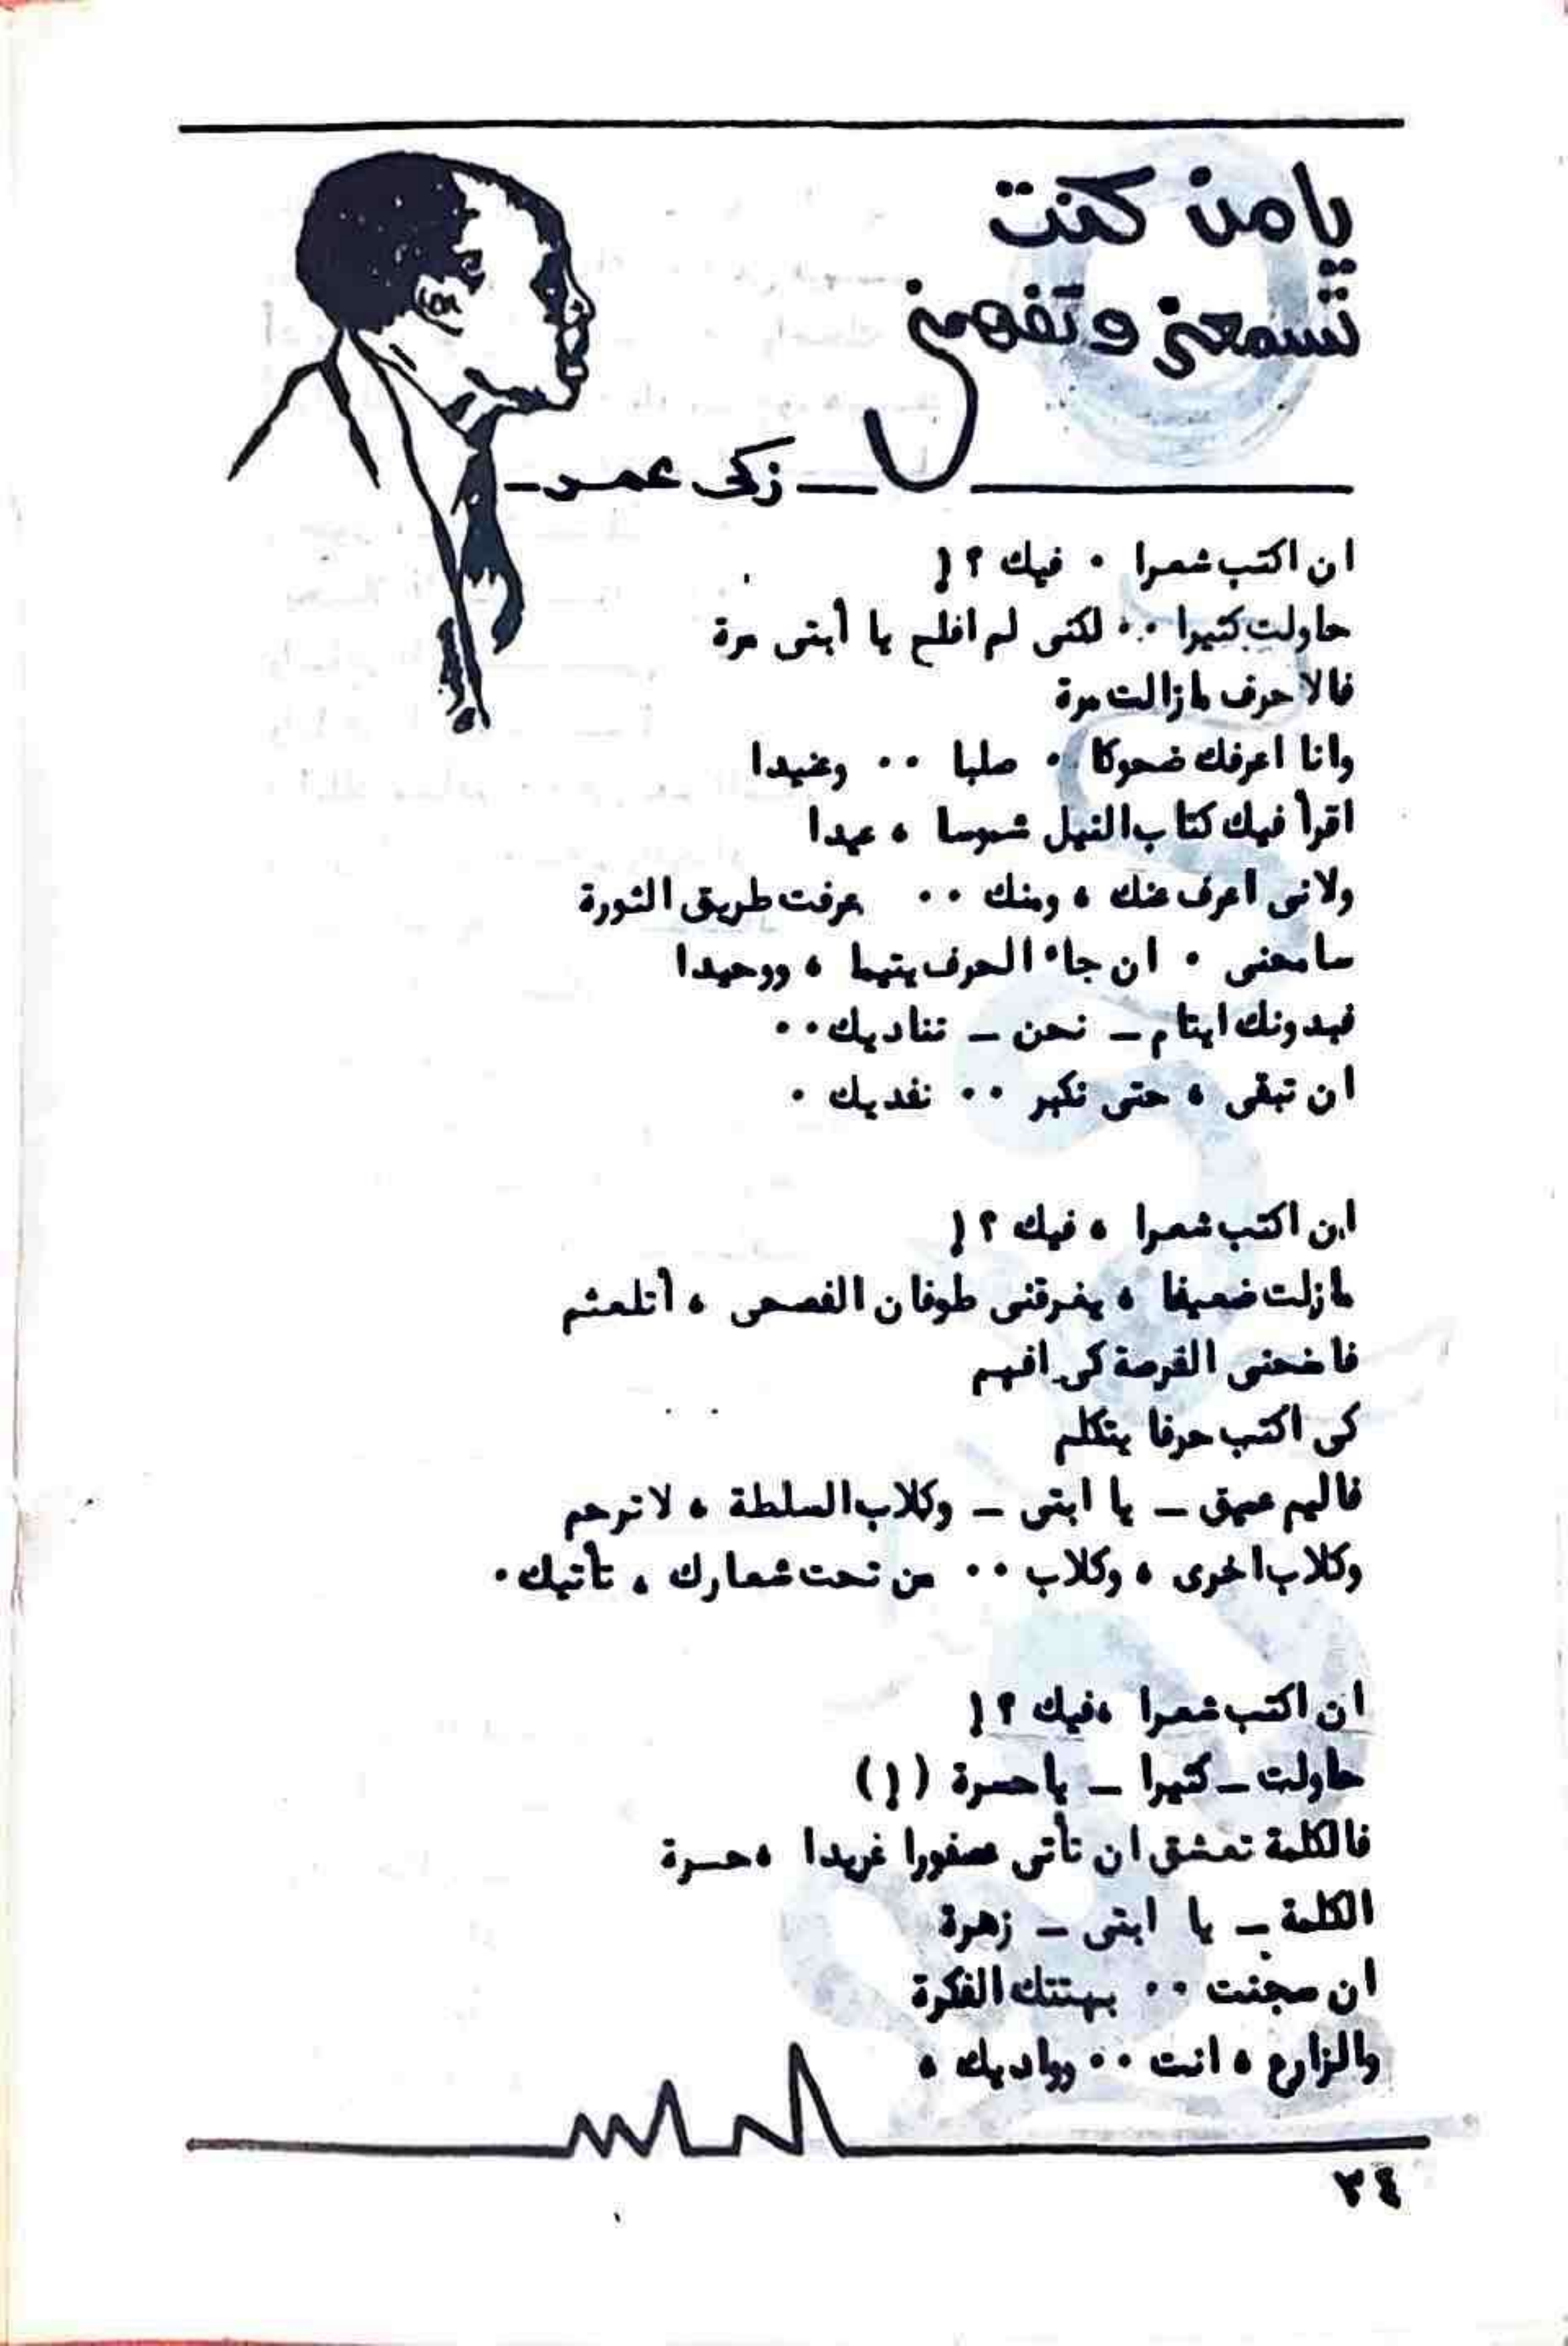 يا من كنت
تسمعنى وتفهمنى
ـــ زكى عمر ـ
ان اكتب شعرا ٠ فيك ؟!
حاولت كثيرا ٠٠ لكنى لم افلح يا أبتى مرة
فالاحرف مازالت مرة
وانا اعرفك ضحوكا ٠ صلبا ٠٠ وعنيدا
اقرأ فيك كتاب النيل شموسا ، عيدا
ولانى اعرف عنك ، ومنك ٠٠ عرفت طريق الثورة
سامحنى ٠ ان جاء الحرف يتيما ، ووحيدا
فبدونك ايتام ـ نحن ـ تناديك ٠٠
ان تبقى ، حتى نكبر ٠٠ نفديك ٠
ان اكتب شعرا ، فيك ؟!
مازلت ضعيفا ، يغرقنى طوفان الفصحى ، أتلعثم
فامنحنى الفرصة كى افهم
كى اكتب حرفا يتكلم
فاليم عميق ـ يا ابتى ـ وكلاب السلطة ، لا ترحم
وكلاب اخرى ، وكلاب ٠٠ من تحت شعارك ، تأتيك ٠
ان اكتب شعرا ،فيك ؟!
حاولت ـ كثيرا ـ ياحسرة (!)
فالكلمة تعشق ان تأتى عصفورا غريدا ،حسرة
الكلمة ـ يا ابتى ـ زهرة
ان سجنت ٠٠ بهتتك الفكرة
والزارع ، انت ٠٠ وواديك ،
٣٤